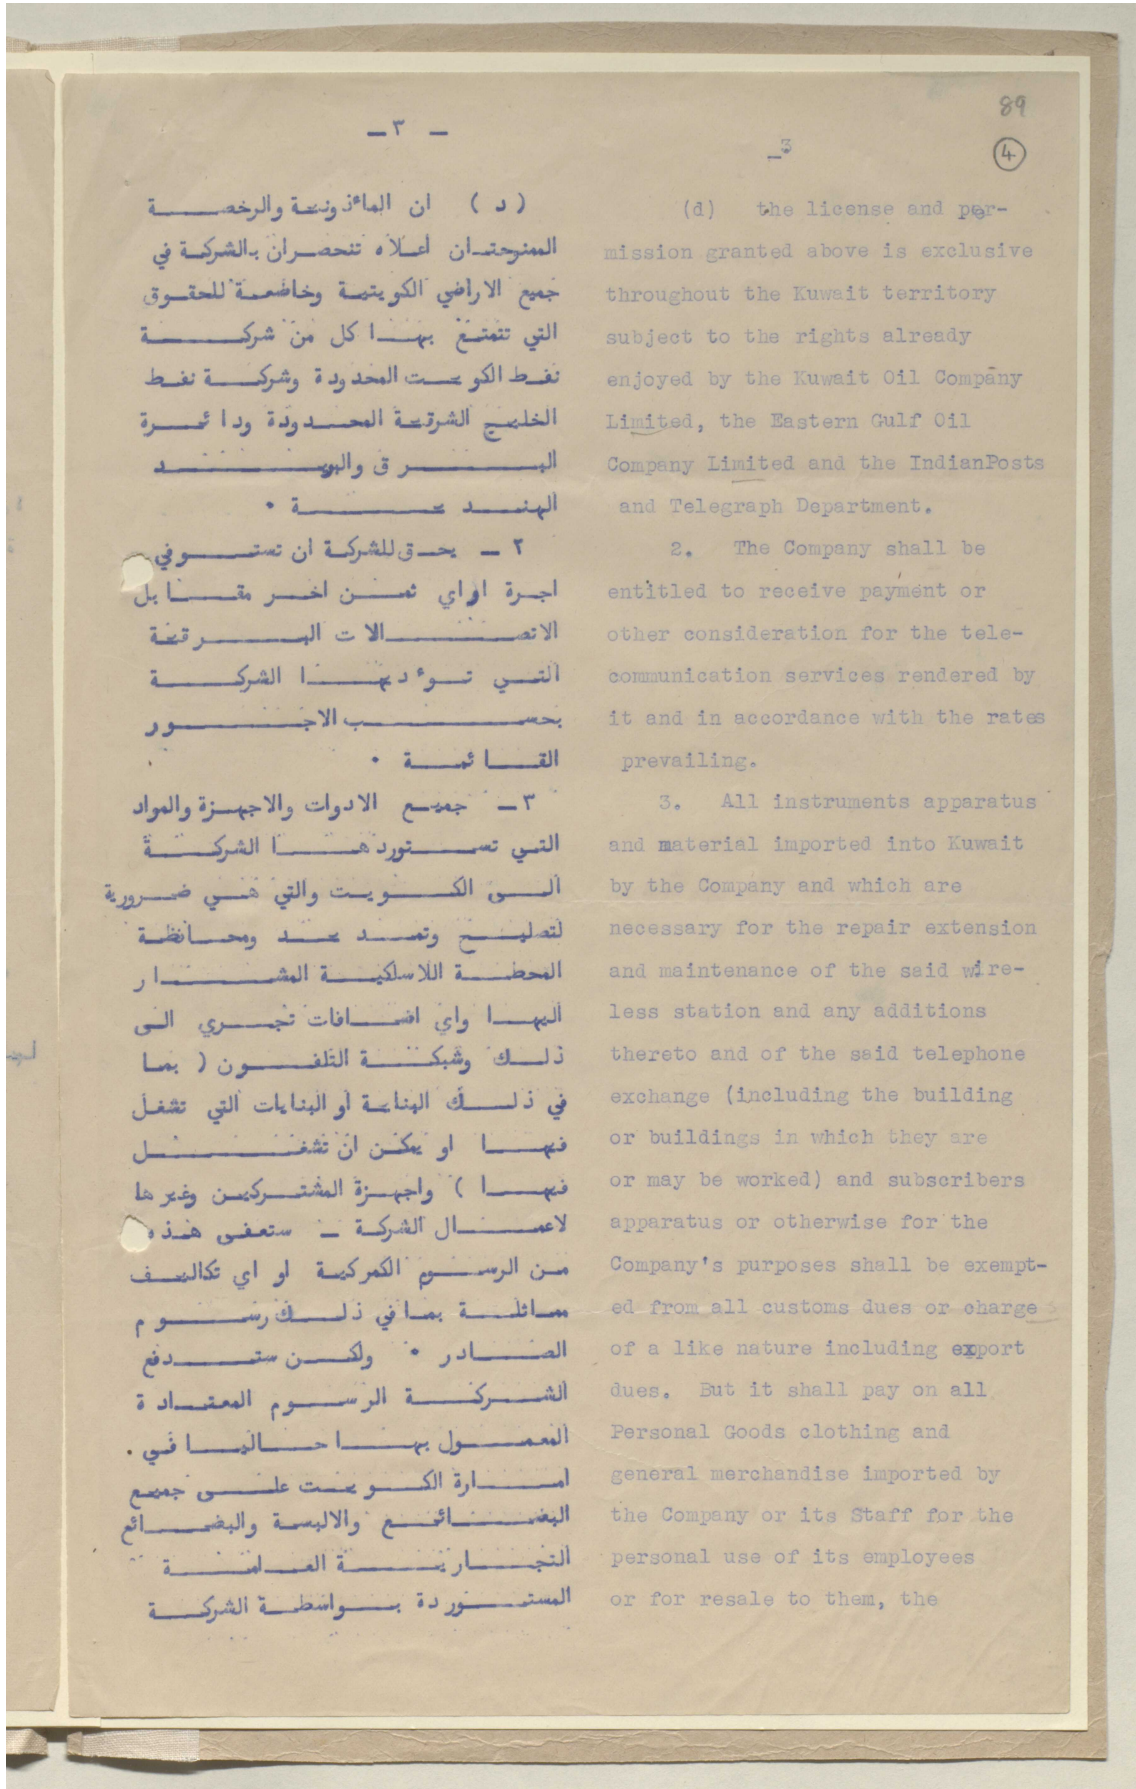 89
4
– ٣ –
(د) ان المأذونية والرخصة
الممنوحتان أعلاه تنحصران بالشركة في
جميع الاراضي الكويتية وخاضعة للحقوق
التي تتمتع بها كل من شركة
نفط الكويت المحدودة وشركة نفط
الخليج الشرقية المحدودة ودائرة
البرق والبريد
الهندية ٠
٢ – يحق للشركة ان تستوفي
اجرة او اي ثمن اخر مقابل
الاتصالات البرقية
التي تؤديها الشركة
بحسب الاجور
القائمة ٠
٣ – جميع الادوات والاجهزة والمواد
التي تستوردها الشركة
الى الكويت والتي هي ضرورية
لتصليح وتمديد ومحافظة
المحطة اللاسلكية المشار
اليها واي اضافات تجري الى
ذلك وشبكة التلفون ( بما
في ذلك البناية أو البنايات التي تشغل
فيها او يمكن ان تشغل
فيها ) واجهزة المشتركين وغيرها
لاعمال الشركة – ستعفى هذه
من الرسوم الكمركية او اي تكاليف
مماثلة بما في ذلك رسوم
الصادر ٠ ولكن ستدفع
الشركة الرسوم المعتادة
المعمول بها حاليا في
امارة الكويت على جميع
البضائع والالبسة والبضائع
التجارية العامة
المستوردة بواسطة الشركة
_3
(d) the license and per-
mission granted above is exclusive
throughout the Kuwait territory
subject to the rights already
enjoyed by the Kuwait Oil Company
Limited, the Eastern Gulf Oil
Company Limited and the IndianPosts
and Telegraph Department.
2. The Company shall be
entitled to receive payment or
other consideration for the tele-
communication services rendered by
it and in accordance with the rates
prevailing.
3. All instruments apparatus
and material imported into Kuwait
by the Company and which are
necessary for the repair extension
and maintenance of the said wire-
less station and any additions
thereto and of the said telephone
exchange (including the building
or buildings in which they are
or may be worked) and subscribers
apparatus or otherwise for the
Company's purposes shall be exempt-
ed from all customs dues or charge
of a like nature including export
dues. But it shall pay on all
Personal Goods clothing and
general merchandise imported by
the Company or its Staff for the
personal use of its employees
or for resale to them, the